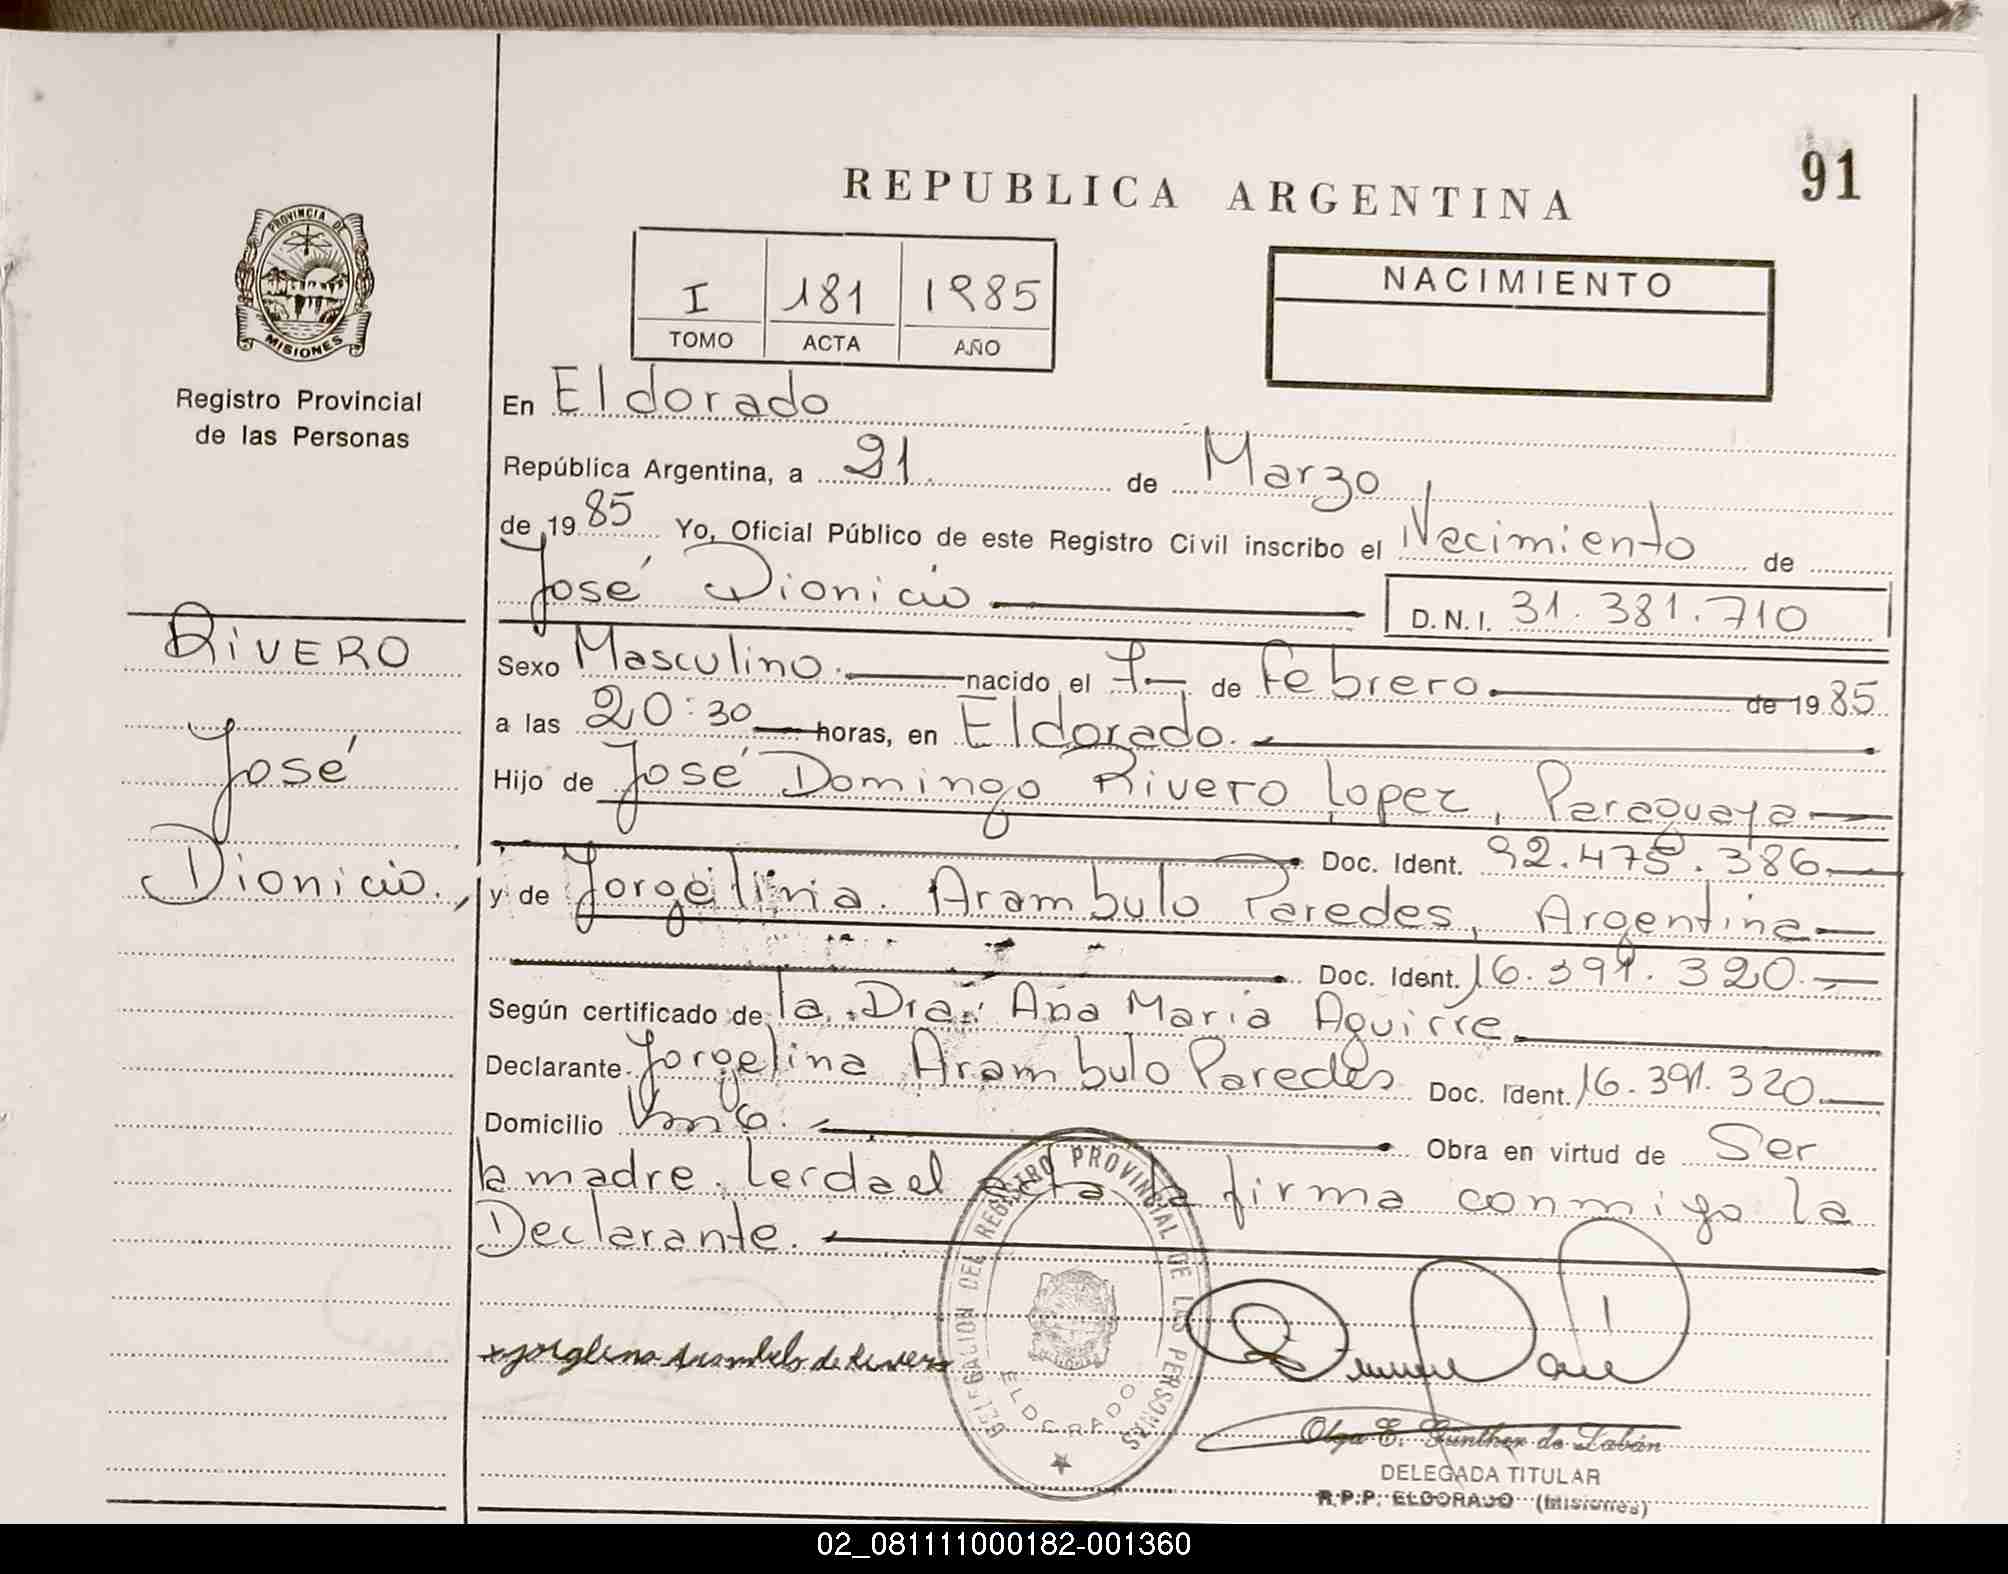 91
REPUBLICA ARGENTINA
PROVINCIA DE
MISIONES
I 181 1985
TOMO ACTA AÑO
NACIMIENTO
Registro Provincial
de las Personas
En Eldorado
República Argentina, a 21 de Marzo
de 1985 Yo, Oficial Público de este Registro Civil inscribo el Nacimiento de
José Dionicio D. N. I. 31.381.710
RIVERO
José
Dionicio.,
Sexo Masculino. nacido el 7 de Febrero de 1985
a las 20:30 horas, en Eldorado.
Hijo de José Domingo Rivero Lopez, Paraguaya
Doc. Ident. 92.475.386
y de Jorgelina Arambulo Paredes, Argentina
Doc. Ident. 16.391.320.
Según certificado de la Dra. Ana Maria Aguirre
Declarante Jorgelina Arambulo Paredes Doc. Ident. 16.391.320.
Domicilio Obra en virtud de Ser
la madre. Leida el acta la firma conmigo la
Declarante.
x Jorglina Arambulo de Rivero
DELEGACION DEL REGISTRO PROVINCIAL DE LAS PERSONAS
ELDORADO
Olga E. Gunther de Labán
DELEGADA TITULAR
R.P.P. ELDORADO (Misiones)
02_081111000182-001360